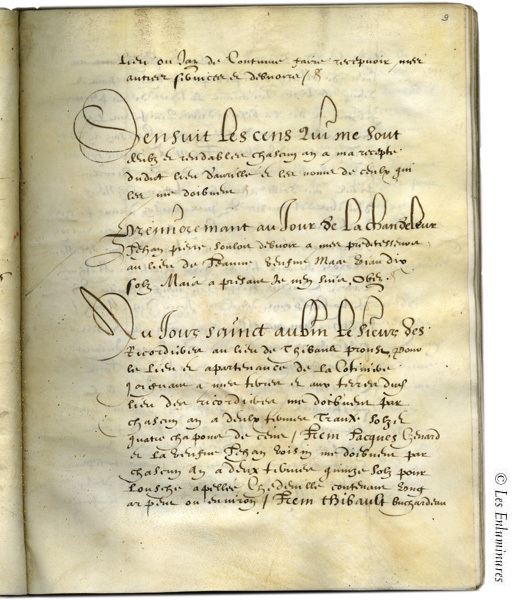 9
Lieu ou Jay de Coutume faire recepvoir mes
autres services et debvoirs /
Sensuit Les cens Qui me Sont
deubz et rendables chascun an a ma recepte
dudict lieu et les noms de ceulx qui
les me doibvent
Premieremant au Jour de La chandeleur
Jehan pierre souloit debvoir a mes predecesseurs
au lieu de Jeanne veufve dix
solz Mais a presant Je men suis
Au Jour sainct aubin Le sieur des
Ricordires au lieu de Thibault pour
le Lieu et apartenance de La
Joignant a mes terres et aux terres dud
lieu des ricordires me doibvent par
chascun an a deulx termes solz et
quatre chapons de cens / Item Jacques
et La veufve Jehan voisin me doibvent par
chascun an a deux termes quinze solz pour
Lousche apellee contenant ung
arpent ou environ / Item thibault
© Les Enluminures